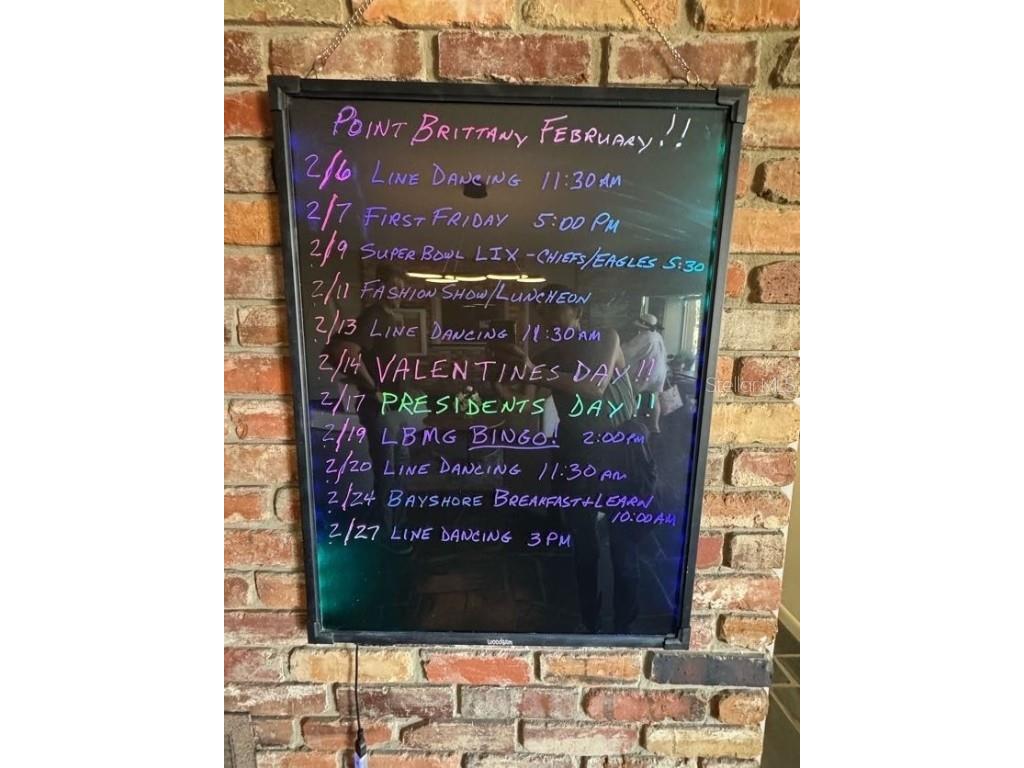 POINT BRITTANY FEBRUARY!!
2/6 LINE DANCING 11:30 AM
2/7 FIRST FRIDAY 5:00 PM
2/9 SUPER BOWL LIX - CHIEFS/EAGLES 5:30
2/11 FASHION SHOW/LUNCHEON
2/13 LINE DANCING 11:30 AM
2/14 VALENTINES DAY!!
2/17 PRESIDENTS DAY!!
2/19 LBMG BINGO! 2:00 PM
2/20 LINE DANCING 11:30 AM
2/24 BAYSHORE BREAKFAST+LEARN
10:00 AM
2/27 LINE DANCING 3 PM
Stellar MLS